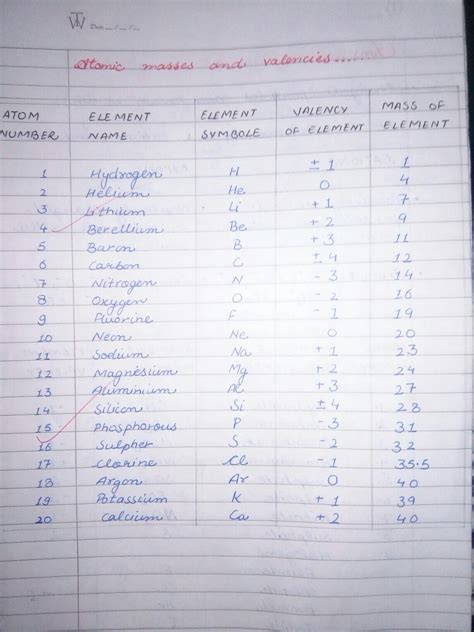 TW Date __/__/__
Atomic masses and valencies......
ATOM NUMBER ELEMENT NAME ELEMENT SYMBOLE VALENCY OF ELEMENT MASS OF ELEMENT
1 Hydrogen H ± 1 1
2 Helium He 0 4
3 Lithium Li + 1 7
4 Berellium Be + 2 9
5 Baron B + 3 11
6 Carbon C ± 4 12
7 Nitrogen N - 3 14
8 Oxygen O - 2 16
9 Fluorine F - 1 19
10 Neon Ne 0 20
11 Sodium Na + 1 23
12 Magnesium Mg + 2 24
13 Aluminium Al + 3 27
14 Silicon Si ± 4 28
15 Phosphorous P - 3 31
16 Sulpher S - 2 32
17 Clorine Cl - 1 35.5
18 Argon Ar 0 40
19 Potassium K + 1 39
20 Calcium Ca + 2 40